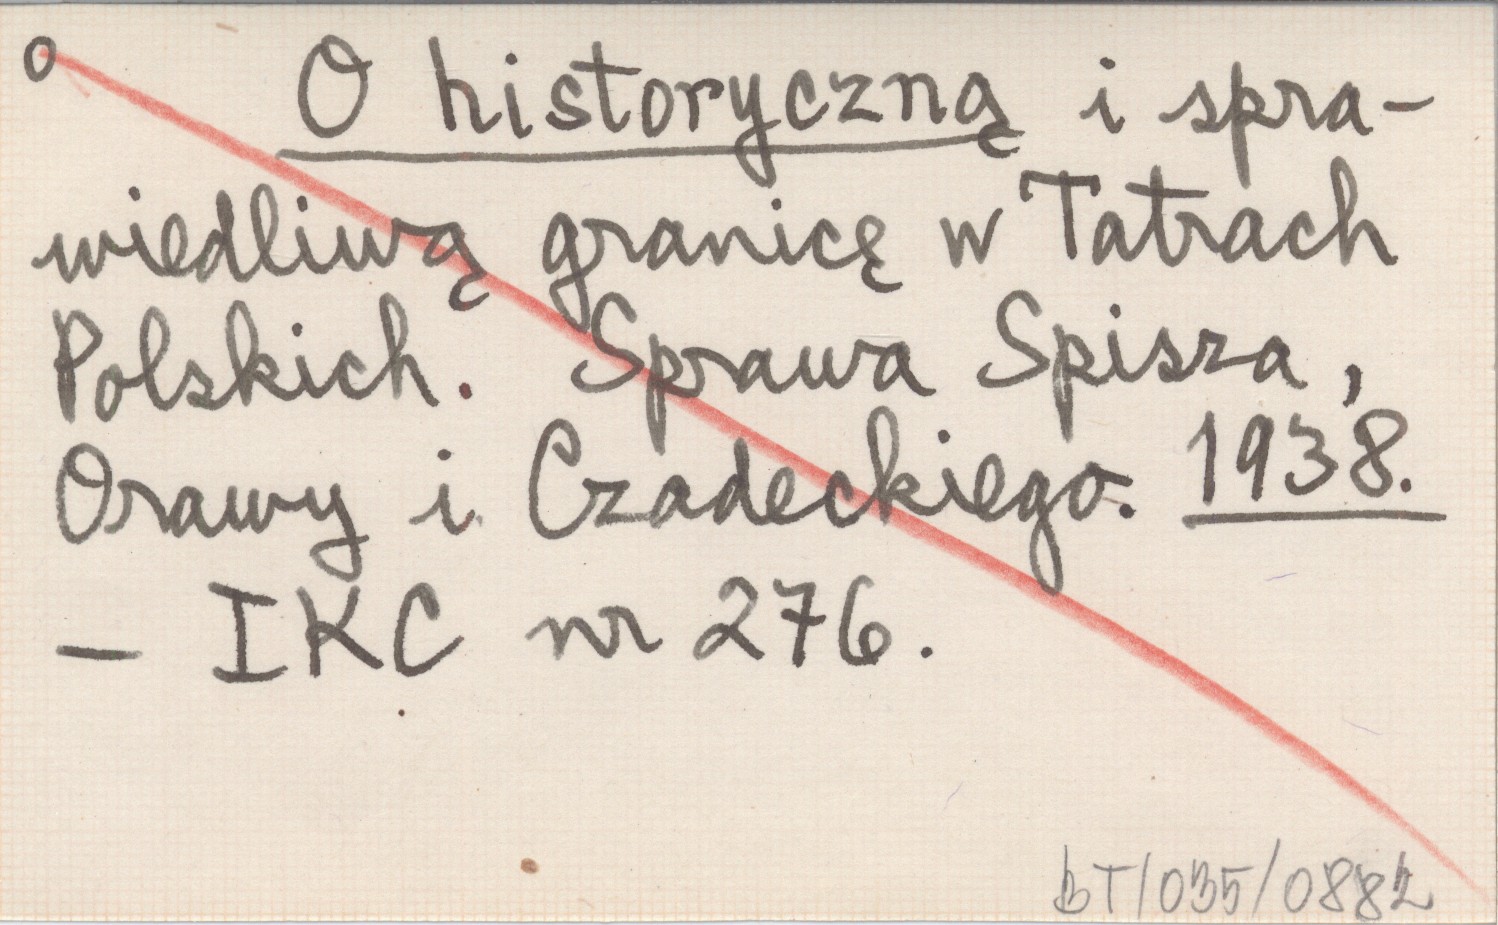 o O historyczną i spra-
wiedliwą granicę w Tatrach
Polskich. Sprawa Spisza,
Orawy i Czadeckiego. 1938.
— IKC nr 276.
BT/035/0882